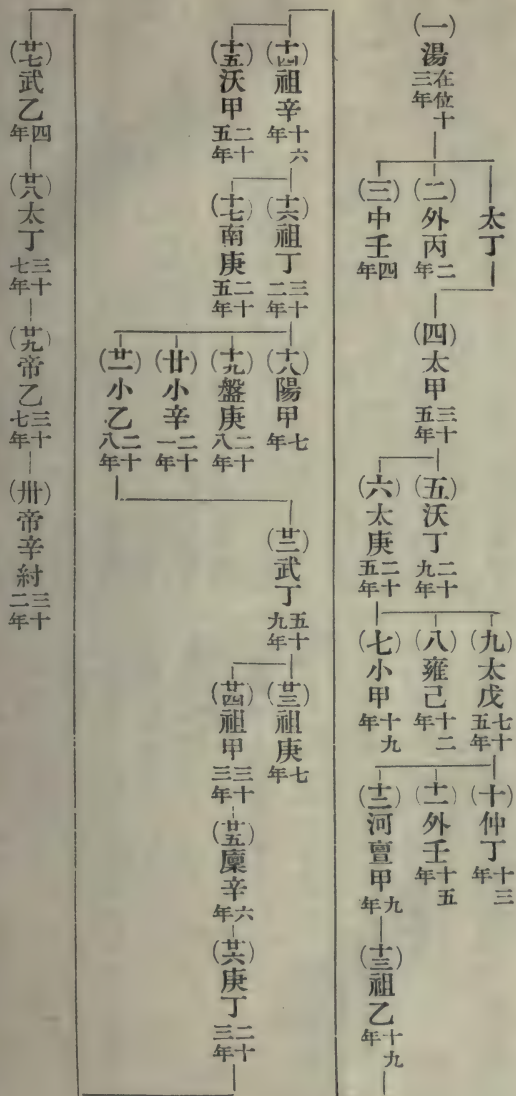 (一)湯在位十三年
太丁
(二)外丙二年
(三)中壬四年
(四)太甲三十五年
(五)沃丁二十九年
(六)太庚二十五年
(九)太戊七十五年
(八)雍己十二年
(七)小甲十九年
(十)仲丁十三年
(十一)外壬十五年
(十二)河亶甲九年
(十三)祖乙十九年
(十四)祖辛十六年
(十五)沃甲二十五年
(十六)祖丁三十二年
(十七)南庚二十五年
(十八)陽甲七年
(十九)盤庚二十八年
(廿)小辛二十一年
(廿一)小乙二十八年
(廿二)武丁五十九年
(廿三)祖庚七年
(廿四)祖甲三十三年
(廿五)廩辛六年
(廿六)庚丁二十三年
(廿七)武乙四年
(廿八)太丁三十七年
(廿九)帝乙三十七年
(卅)帝辛紂三十二年